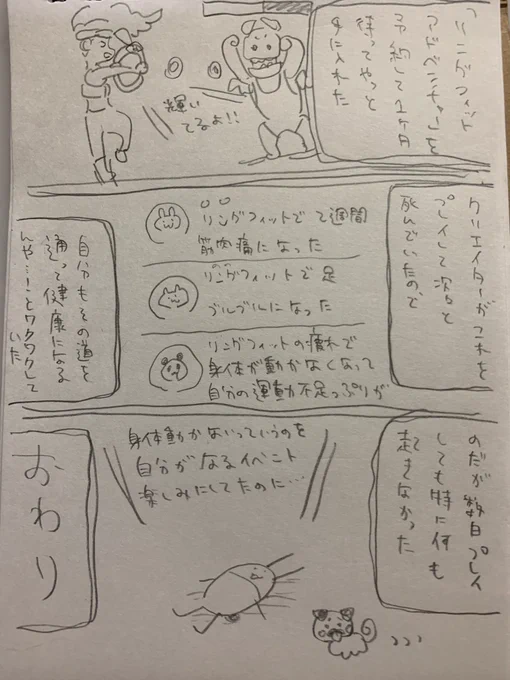 「リングフィット
アドベンチャー」を
予約して1ヶ月
待ってやっと
手に入れた
輝い
てるよ!!
クリエイターがこれを
プレイして次々と
死んでいたので
リングフィットで1週間
筋肉痛になった
リングフィットで足
プルプルになった
リングフィットの疲れで
身体が動かなくなって
自分の運動不足っぷりが
自分もその道を
通って健康になる
んや…!とワクワクして
いた
のだが数日プレイ
しても特に何も
起きなかった
身体動かないっていうのを
自分がなるイベント
楽しみにしてたのに…
おわり